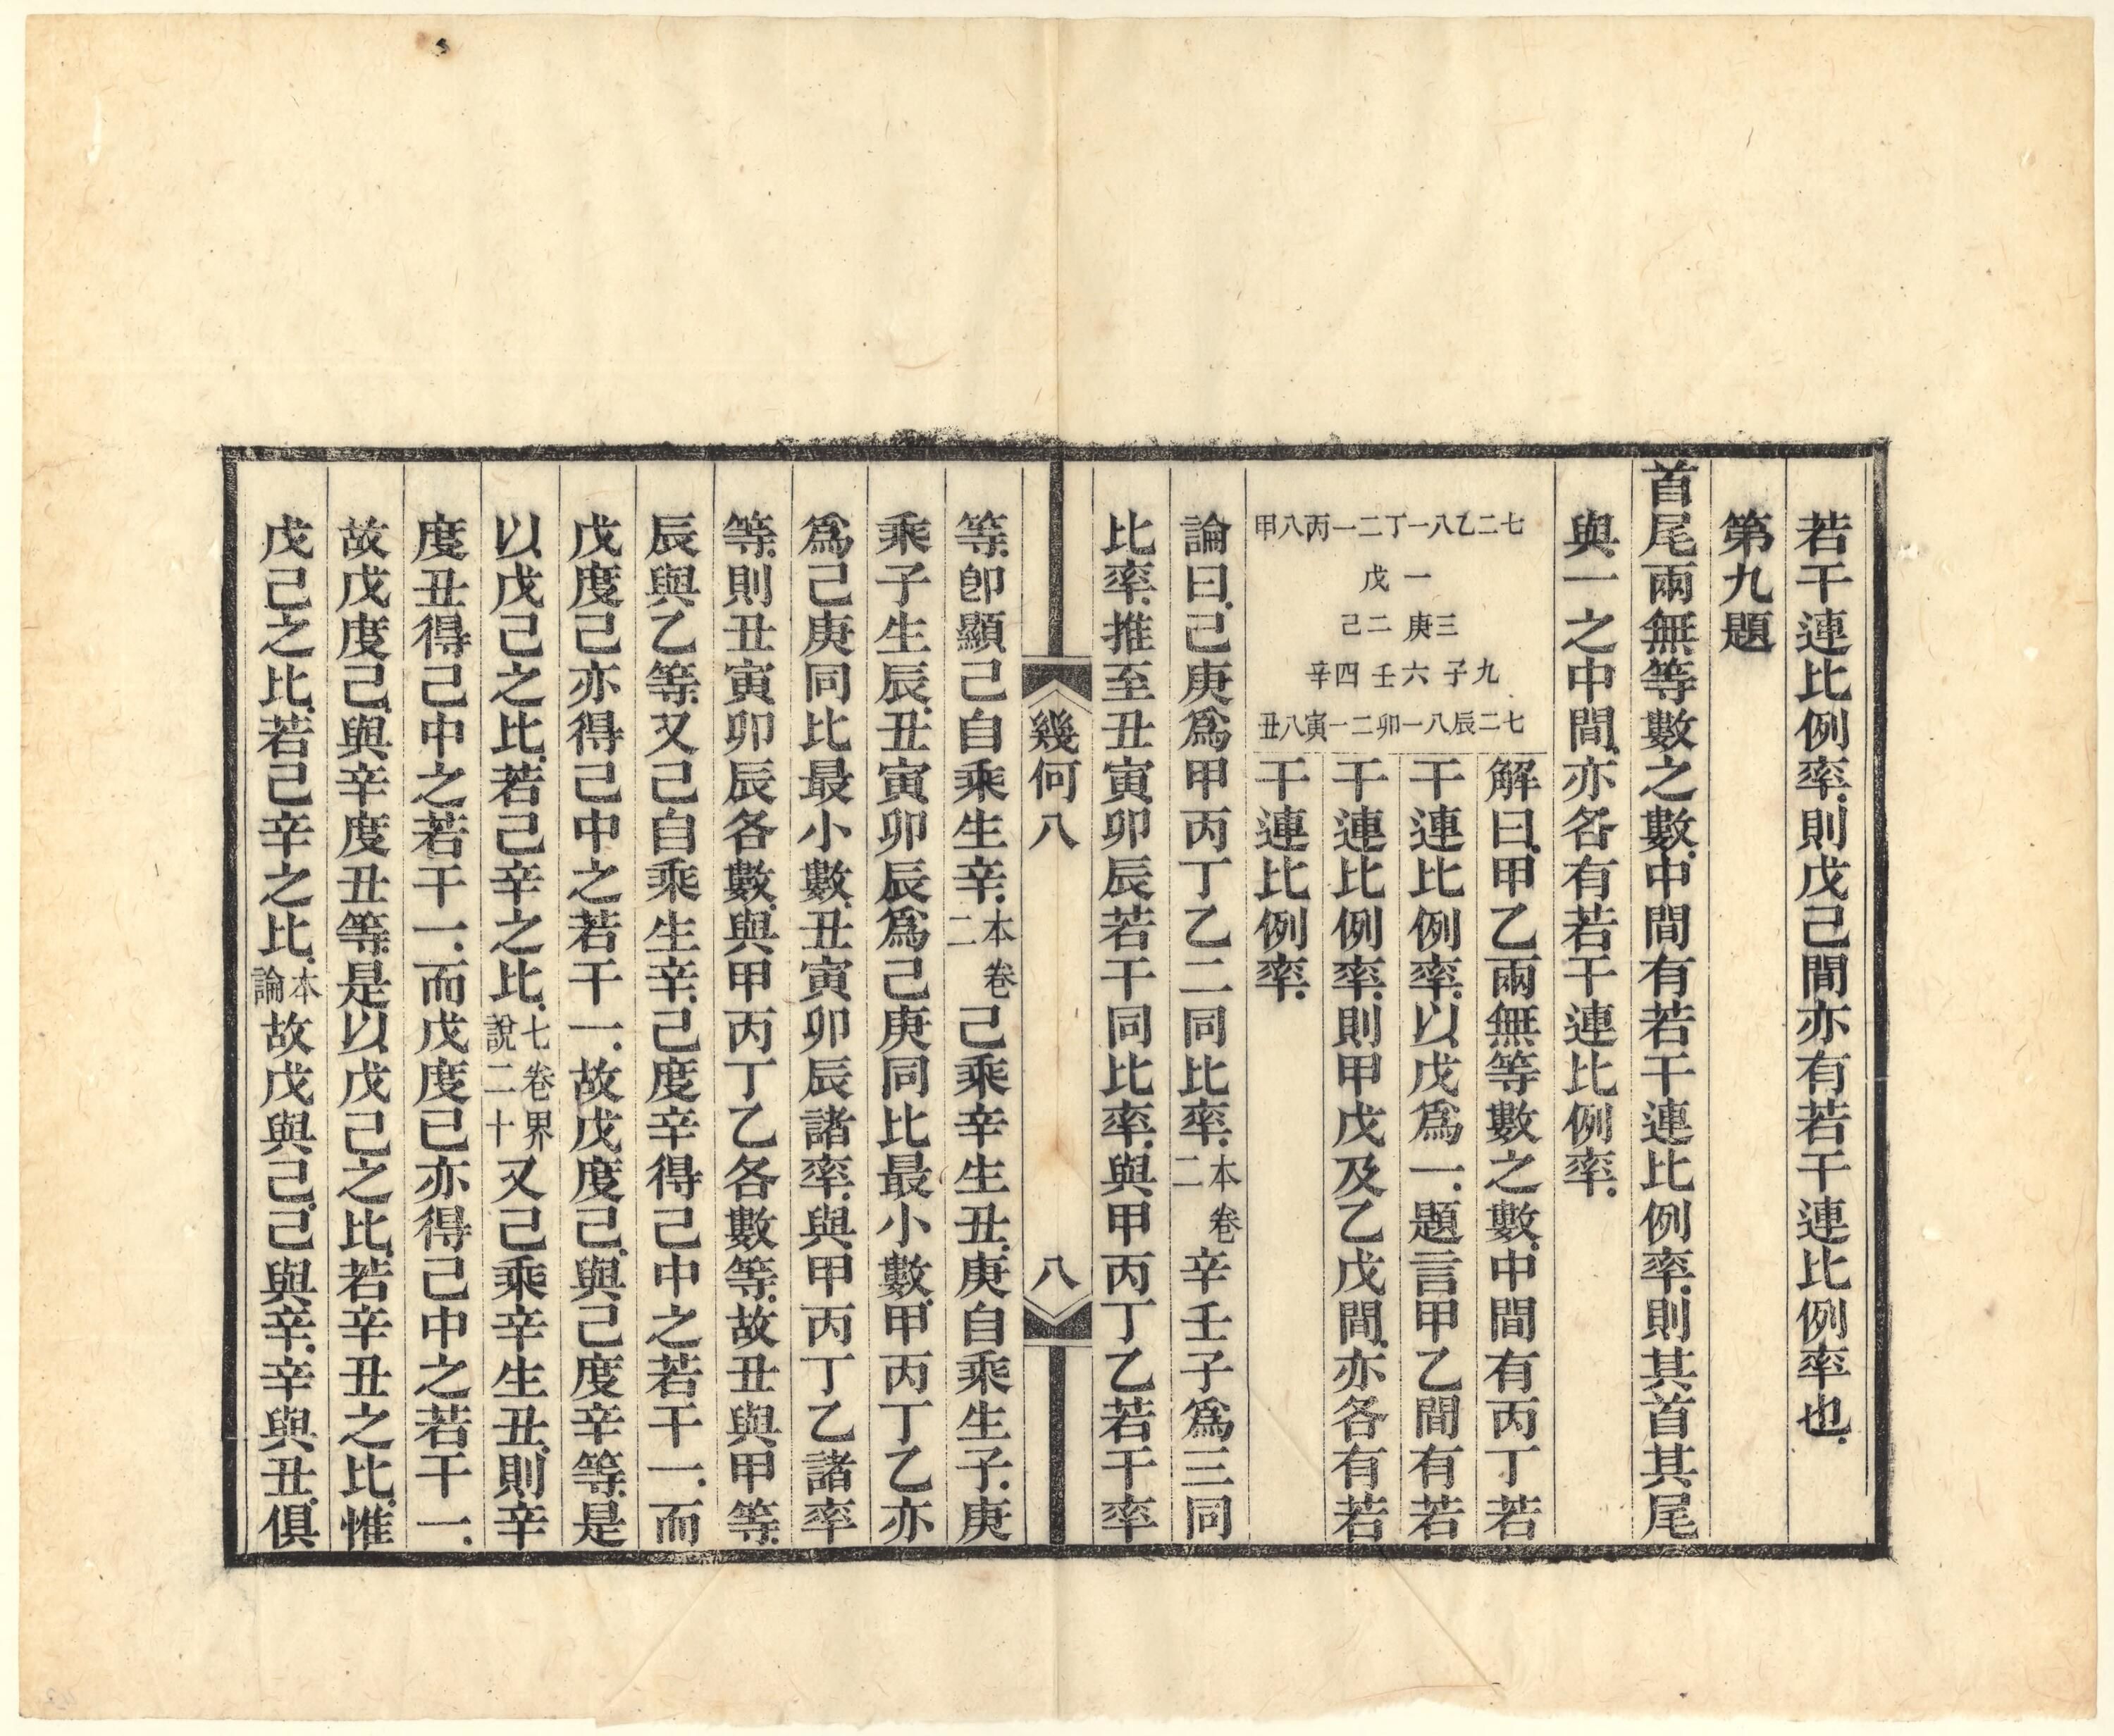 若干連比例率.則戊己間亦有若干連比例率也.
第九題
首尾兩無等數之數.中間有若干連比例率.則其首其尾
與一之中間.亦各有若干連比例率.
甲八丙一二丁一八乙二七
戊一
己二庚三
辛四壬六子九
丑八寅一二卯一八辰二七
解曰.甲乙兩無等數之數.中間有丙丁若
干連比例率.以戊爲一.題言甲乙間有若
干連比例率.則甲戊及乙戊間.亦各有若
干連比例率.
論曰.己庚爲甲丙丁乙二同比率.本卷二辛壬子爲三同
比率.推至丑寅卯辰若干同比率.與甲丙丁乙若干率
幾何八
八
等.卽顯己自乘生辛.本卷二己乘辛生丑.庚自乘生子.庚
乘子生辰.丑寅卯辰爲己庚同比最小數.甲丙丁乙亦
爲己庚同比最小數.丑寅卯辰諸率.與甲丙丁乙諸率
等.則丑寅卯辰各數.與甲丙丁乙各數等.故丑與甲等.
辰與乙等.又己自乘生辛.己度辛得己中之若干一.而
戊度己亦得己中之若干一.故戊度己.與己度辛等.是
以戊己之比.若己辛之比.七卷界說二十又己乘辛生丑.則辛
度丑得己中之若干一.而戊度己亦得己中之若干一.
故戊度己.與辛度丑等.是以戊己之比.若辛丑之比.惟
戊己之比.若己辛之比.本論故戊與己.己與辛.辛與丑.俱